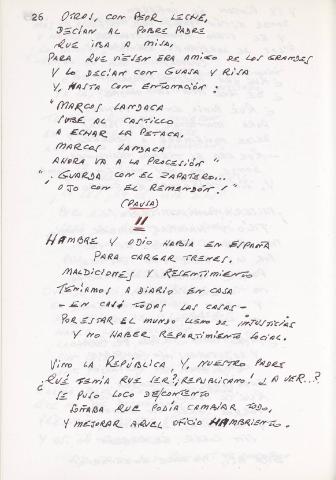 26 OTROS, CON PEOR LECHE,
DECÍAN AL POBRE PADRE
QUE IBA A MISA,
PARA QUE VIESEN ERA AMIGO DE LOS GRANDES
Y LO DECÍAN CON GUASA Y RISA
Y, HASTA CON ENTONACIÓN:
"MARCOS LANDACA
SUBE AL CASTILLO
A ECHAR LA PETACA.
MARCOS LANDACA
AHORA VA A LA PROCESIÓN"
"¡GUARDA CON EL ZAPATERO...
OJO CON EL REMENDÓN!"
(PAUSA)
II
HAMBRE Y ODIO HABÍA EN ESPAÑA
PARA CARGAR TRENES.
MALDICIONES Y RESENTIMIENTO
TENÍAMOS A DIARIO EN CASA
- EN CASI TODAS LAS CASAS -
POR ESTAR EL MUNDO LLENO DE INJUSTICIAS
Y NO HABER REPARTIMIENTO SOCIAL.
VINO LA REPÚBLICA Y, NUESTRO PADRE
¿QUÉ TENÍA QUE SER?, ¡REPUBLICANO! ¿A VER...?
SE PUSO LOCO DE CONTENTO
SOÑABA QUE PODÍA CAMBIAR TODO,
Y MEJORAR AQUEL OFICIO HAMBRIENTO.